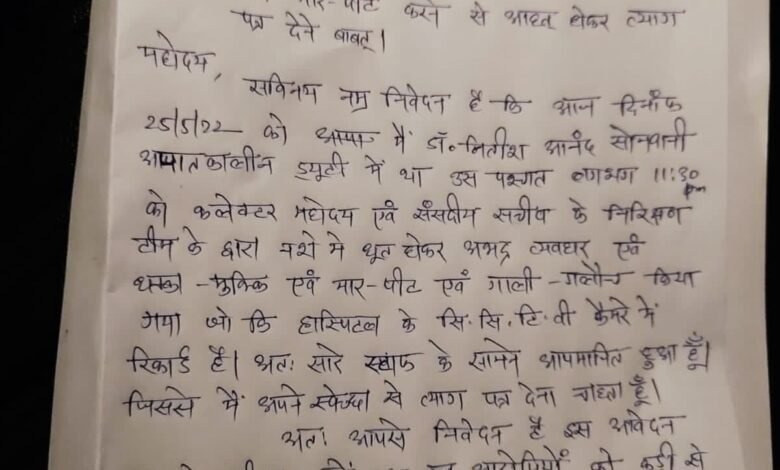 मार-पीट करने से आहत होकर त्याग
पत्र देने बाबत्।
महोदय,
सविनय नम्र निवेदन है कि आज दिनाँक
25/5/22 को मैं डॉ. नितीश आनंद सोनवानी
आपातकालीन ड्यूटी में था उस पश्चात लगभग 11:30
pm
को कलेक्टर महोदय एवं संसदीय सचीव के निरिक्षण
टीम के द्वारा नशे मे धूत होकर अभद्र व्यवहार एवं
धक्का-मुक्कि एवं मार-पीट एवं गाली-गलौच किया
गया जो कि हास्पिटल के सि.सि.टि.वी कैमरे में
रिकार्ड है। अतः सारे स्टाफ के सामने अपमानित हुआ हूँ।
जिससे मैं अपने स्वेच्छा से त्याग पत्र देना चाहता हूँ।
अतः आपसे निवेदन है इस आवेदन
आरोपियों को कड़ी से